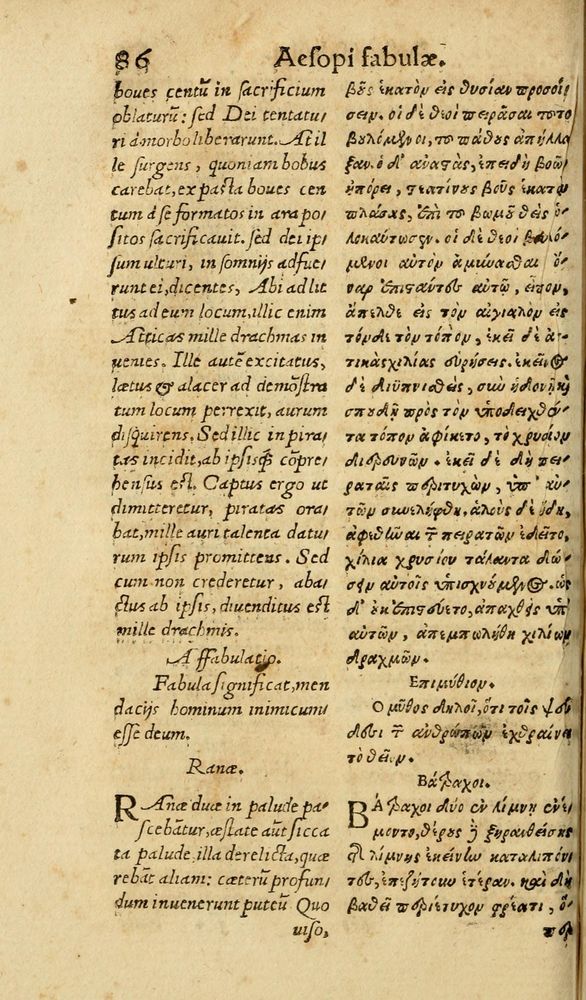 86 Aesopi fabulæ.
boves centū in sacrificium
oblaturū: sed Dei tentatu/
ri à morbo liberarunt. At il
le surgens, quoniam bobus
carebat, ex pasta boves cen
tum à se formatos in ara po/
sitos sacrificavit. sed dei ip/
sum ulturi, in somnijs adfue/
runt ei, dicentes, Abi ad lit
tus ad eum locum, illic enim
Atticas mille drachmas in
uenies. Ille autē excitatus,
lætus & alacer ad demōstra
tum locum perrexit, aurum
disquirens. Sed illic in pira/
tas incidit, ab ipsisq; cōpre/
hensus est. Captus ergo ut
dimitteretur, piratas ora/
bat, mille auri talenta datu/
rum ipsis promittens. Sed
cum non crederetur, aba/
ctus ab ipsis, divenditus est
mille drachmis.
Affabulatio.
Fabula significat, men
dacijs hominum inimicum
esse deum.
Ranæ.
RAnæ duæ in palude pa/
scebātur, æstate aūt sicca
ta palude, illa derelicta, quæ
rebāt aliam: cæterū profun/
dum invenerunt puteū Quo
uiso,
βοῦς ἑκατὸν εἰς θυσίαν προσοί
σειν. οἱ δὲ θεοὶ πειρᾶσαι τοῦτο
βουλόμενοι, τοῦ πάθους ἀπήλλα
ξαν. ὁ δ' ἀναστὰς, ἐπειδὴ βοῶν
ἠπόρει, στεατίνους βοῦς ἑκατὸν
πλάσας, ἐπὶ τοῦ βωμοῦ θεὶς ὁ-
λοκαύτωσεν. οἱ δὲ θεοὶ βουλό
μενοι αὐτὸν ἀμύνασθαι ὄ-
ναρ ἐπιστάντες αὐτῷ, εἶπον,
ἄπελθε εἰς τὸν αἰγιαλὸν εἰς
τόνδε τὸν τόπον, ἐκεῖ δὲ ἀτ-
τικὰς χιλίας εὑρήσεις. ἐκεῖνος
δὲ διυπνισθεὶς, σὺν ἡδονῇ καὶ
σπουδῇ πρὸς τὸν ὑποδειχθέν
τα τόπον ἀφίκετο, τὸ χρυσίον
διερευνῶν. ἐκεῖ δὲ δὴ πει-
ραταῖς περιτυχὼν, ὑπ' αὐ-
τῶν συνελήφθη, ἁλοὺς δὲ ἤδη,
ἀφεθῆναι τῶν πειρατῶν ἐδεῖτο,
χίλια χρυσίου τάλαντα δώ-
σειν αὐτοῖς ὑπισχνούμενος. ὡς
δ' οὐκ ἐπιστεύετο, ἀπαχθεὶς ὑπ'
αὐτῶν, ἀπεμπωλήθη χιλίων
δραχμῶν.
Επιμύθιον.
Ο μῦθος δηλοῖ, ὅτι τοῖς ψεύ
δεσι τῶν ἀνθρώπων ἐχθραίνει
τὸ θεῖον.
Βάτραχοι.
ΒΑτραχοι δύο ἐν λίμνῃ ἐνέ
μοντο, θέρους δὲ ξηρανθείσης
τῆς λίμνης ἐκείνην καταλιπόν
τες, ἐπεζήτουν ἑτέραν. καὶ δὴ
βαθεῖ περιέτυχον φρέατι, ὅ-
περ